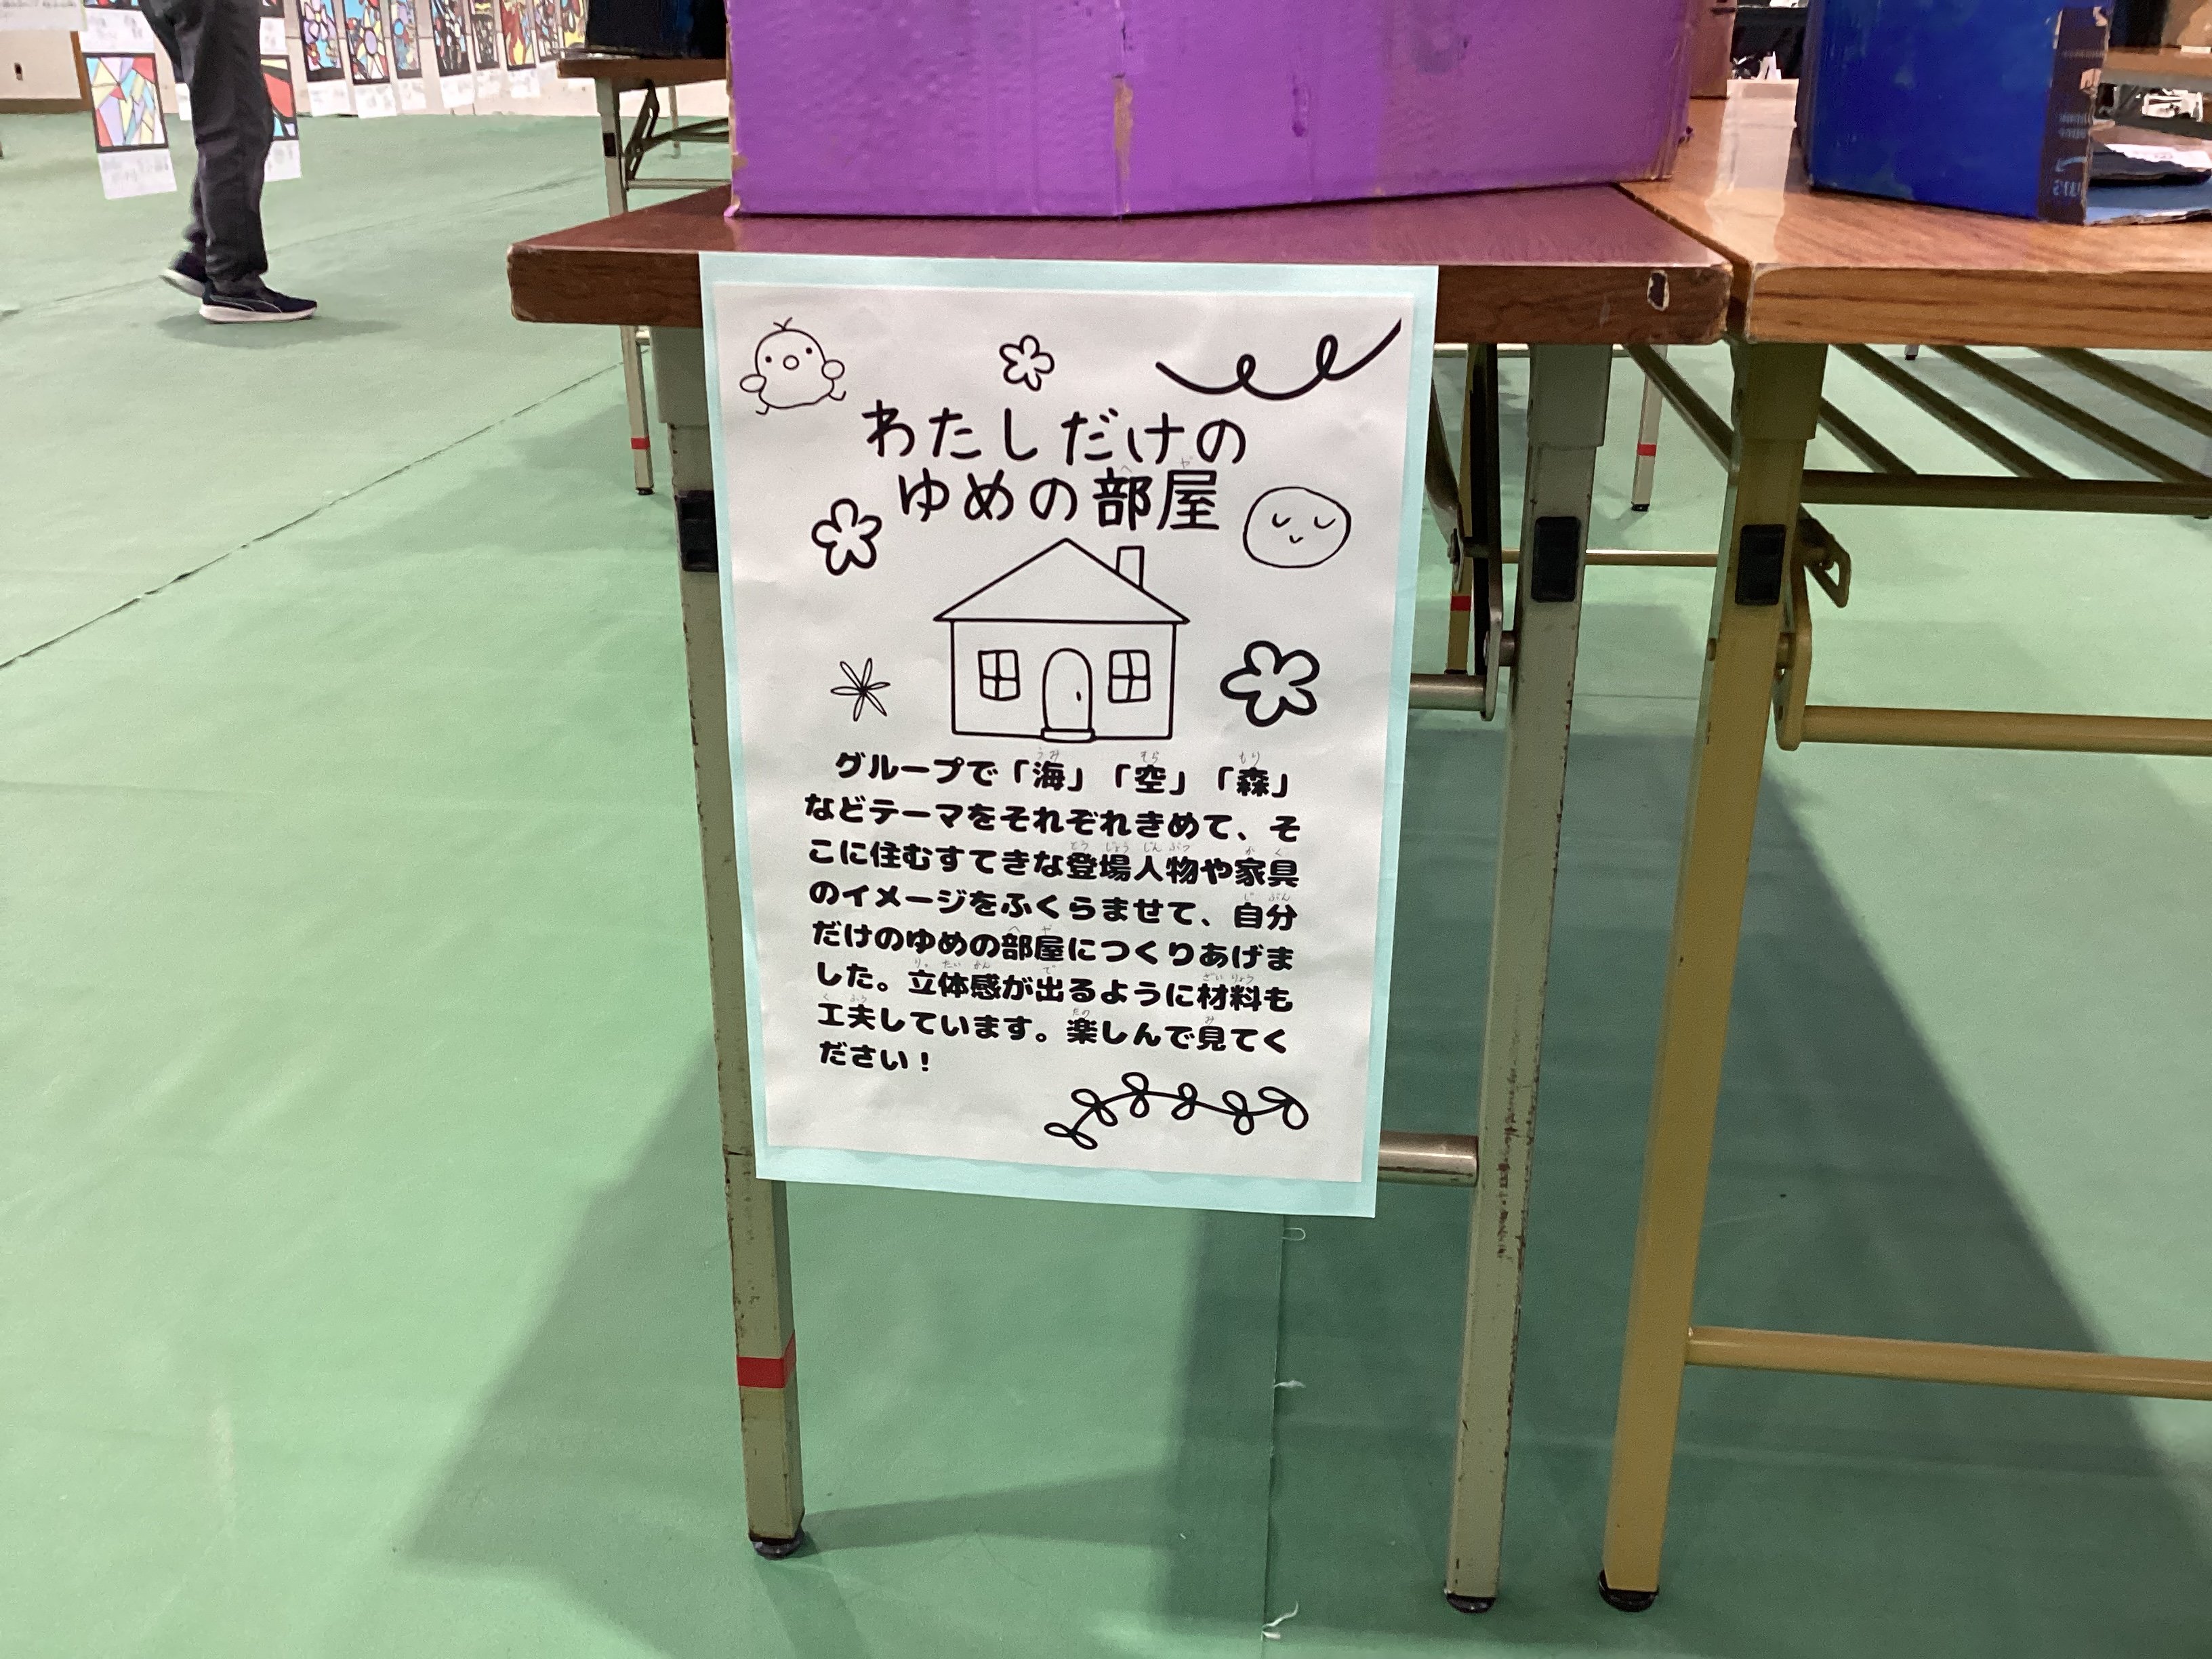 わたしだけの
ゆめの部屋
グループで「海」「空」「森」
などテーマをそれぞれきめて、そ
こに住むすてきな登場人物や家具
のイメージをふくらませて、自分
だけのゆめの部屋につくりあげま
した。立体感が出るように材料も
工夫しています。楽しんで見てく
ださい！